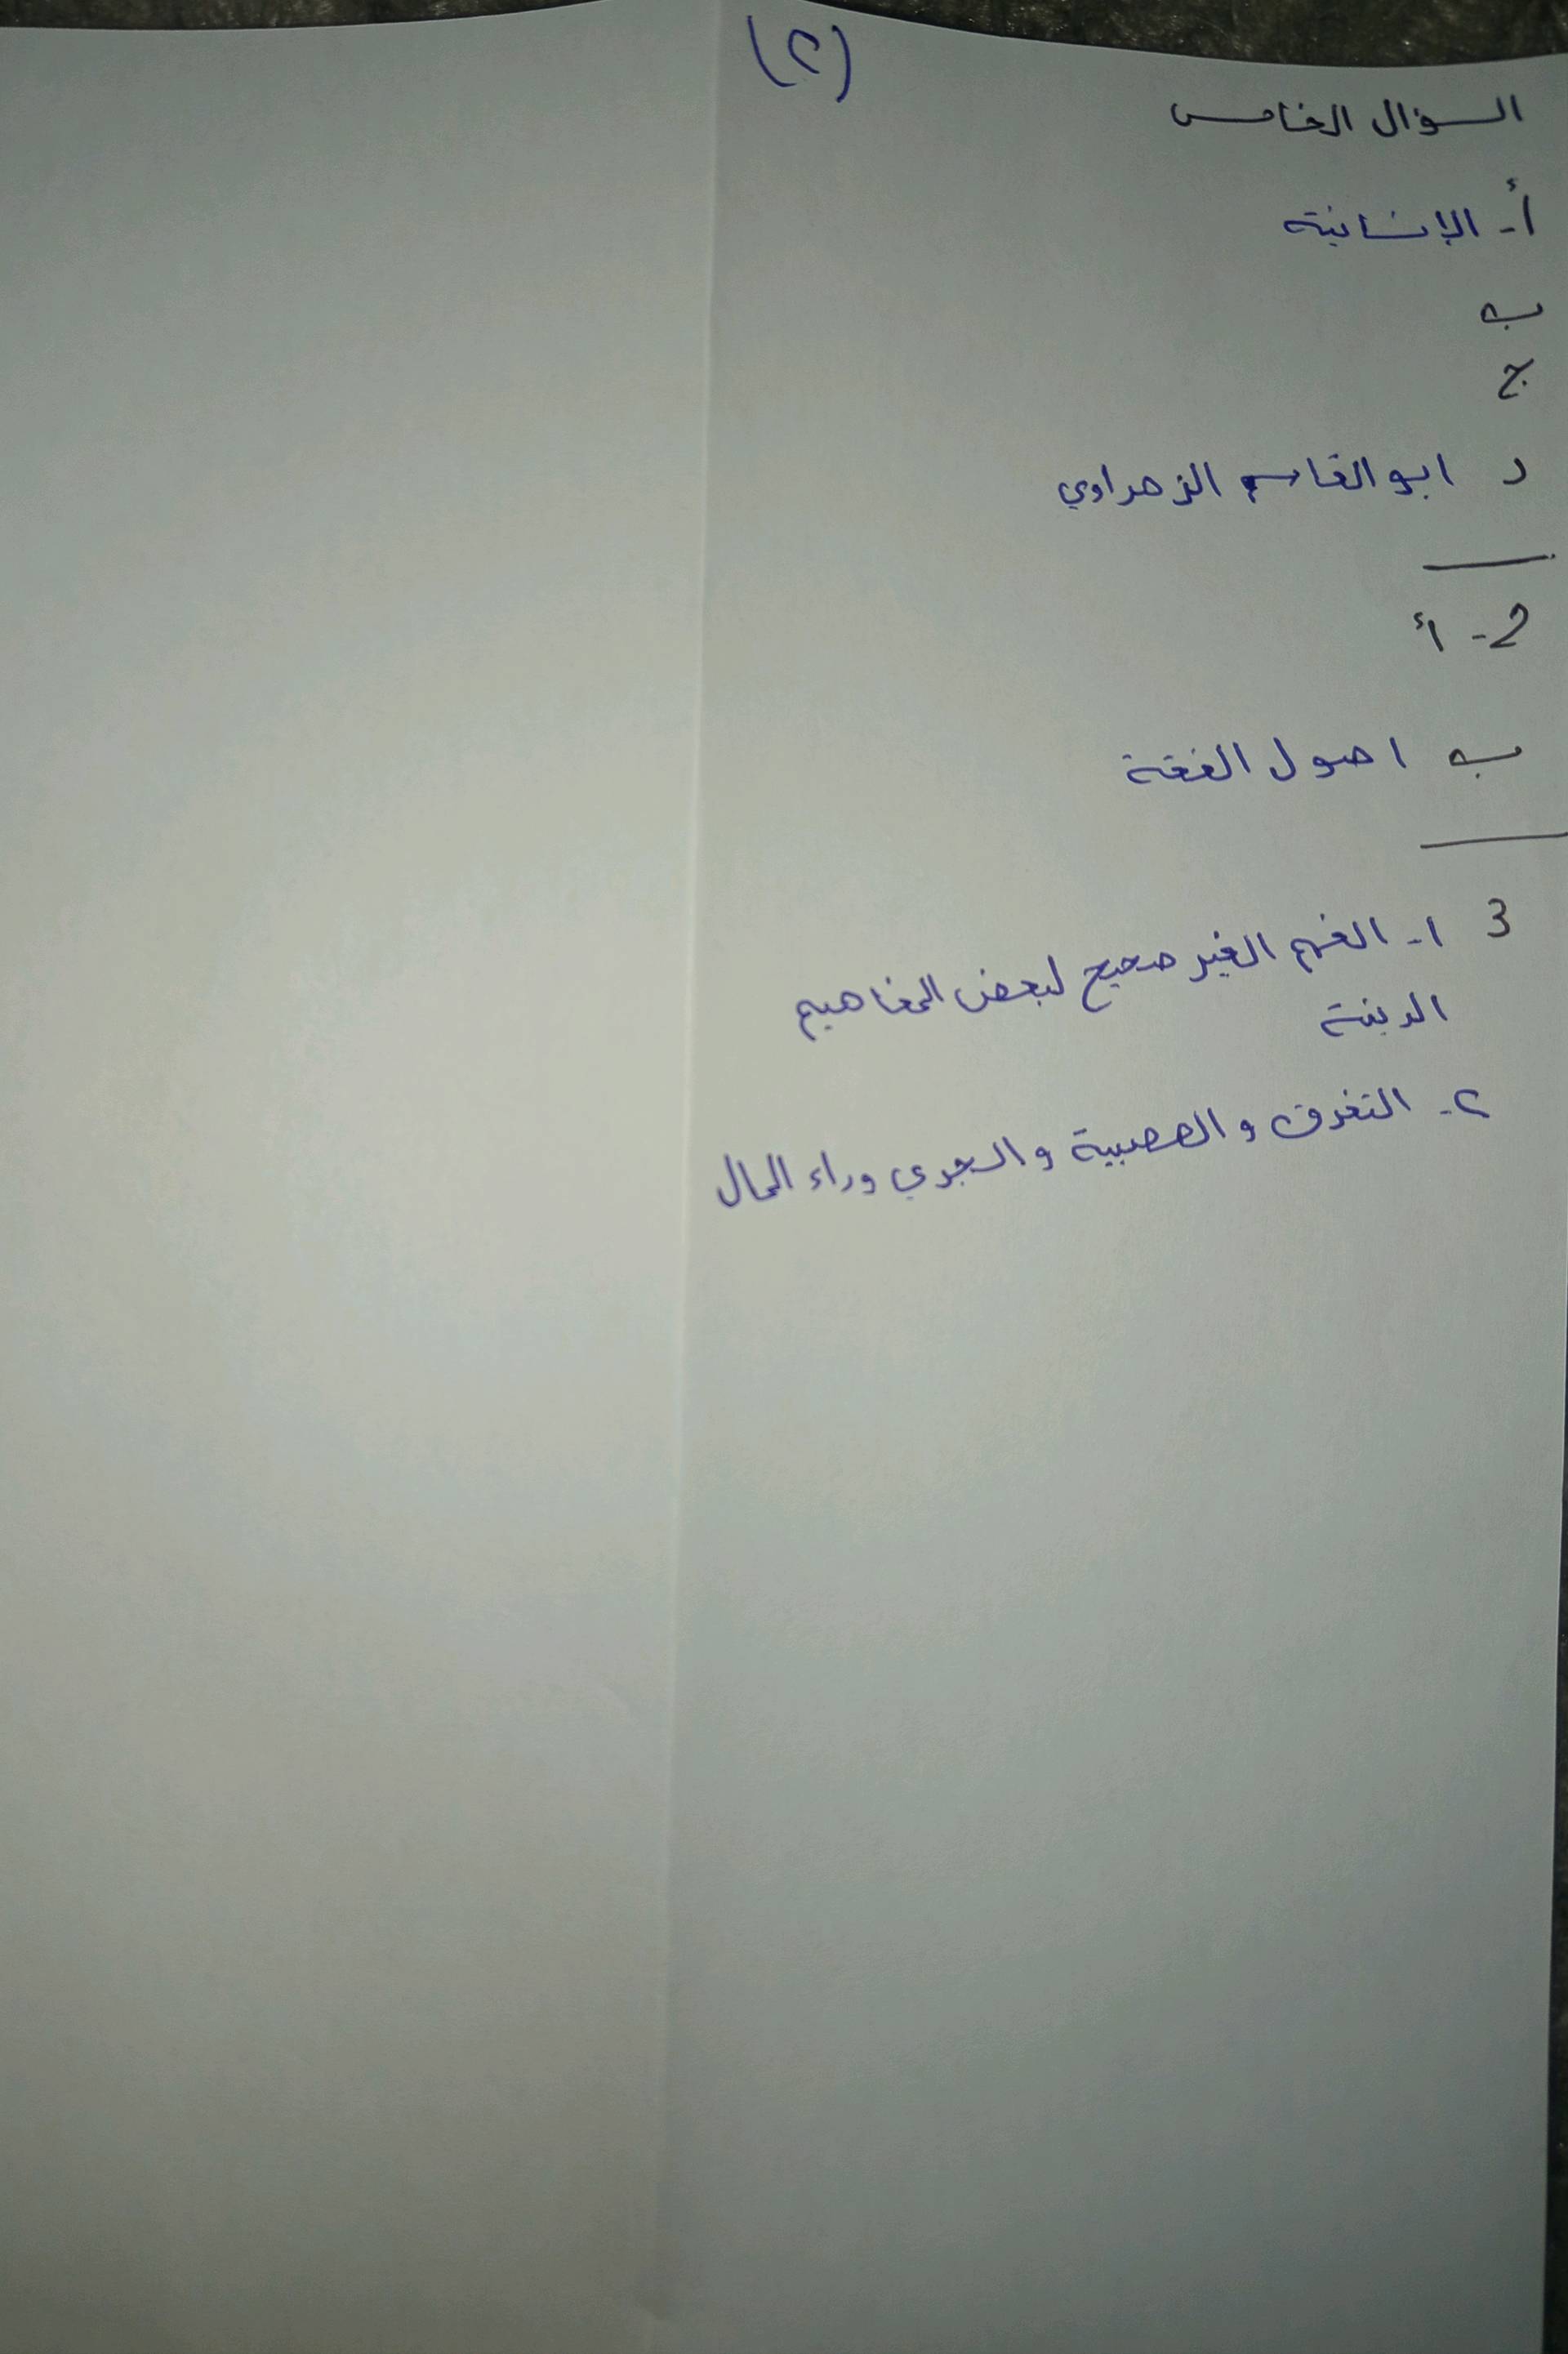 (٢)
السؤال الخامس
أ- الإنسانية
ب
ج
د ابو القاسم الزهراوي
2- أ
ب اصول الفقة
3 ١- الفهم الغير صحيح لبعض المفاهيم
الدينية
٢- التفرق والعصبية والجري وراء المال